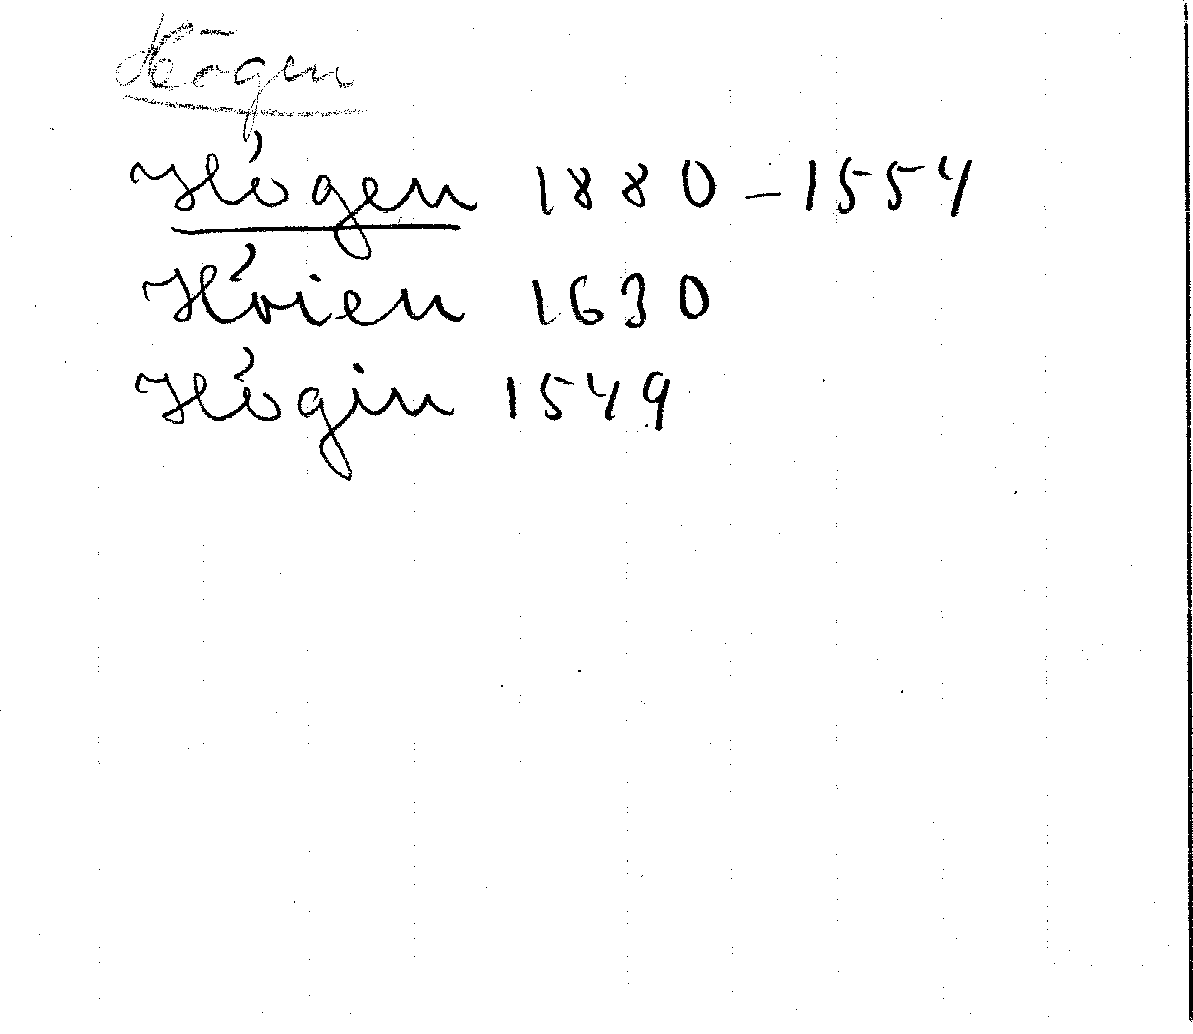 Högen
Högen 1880–1554
Höien 1630
Högin 1549